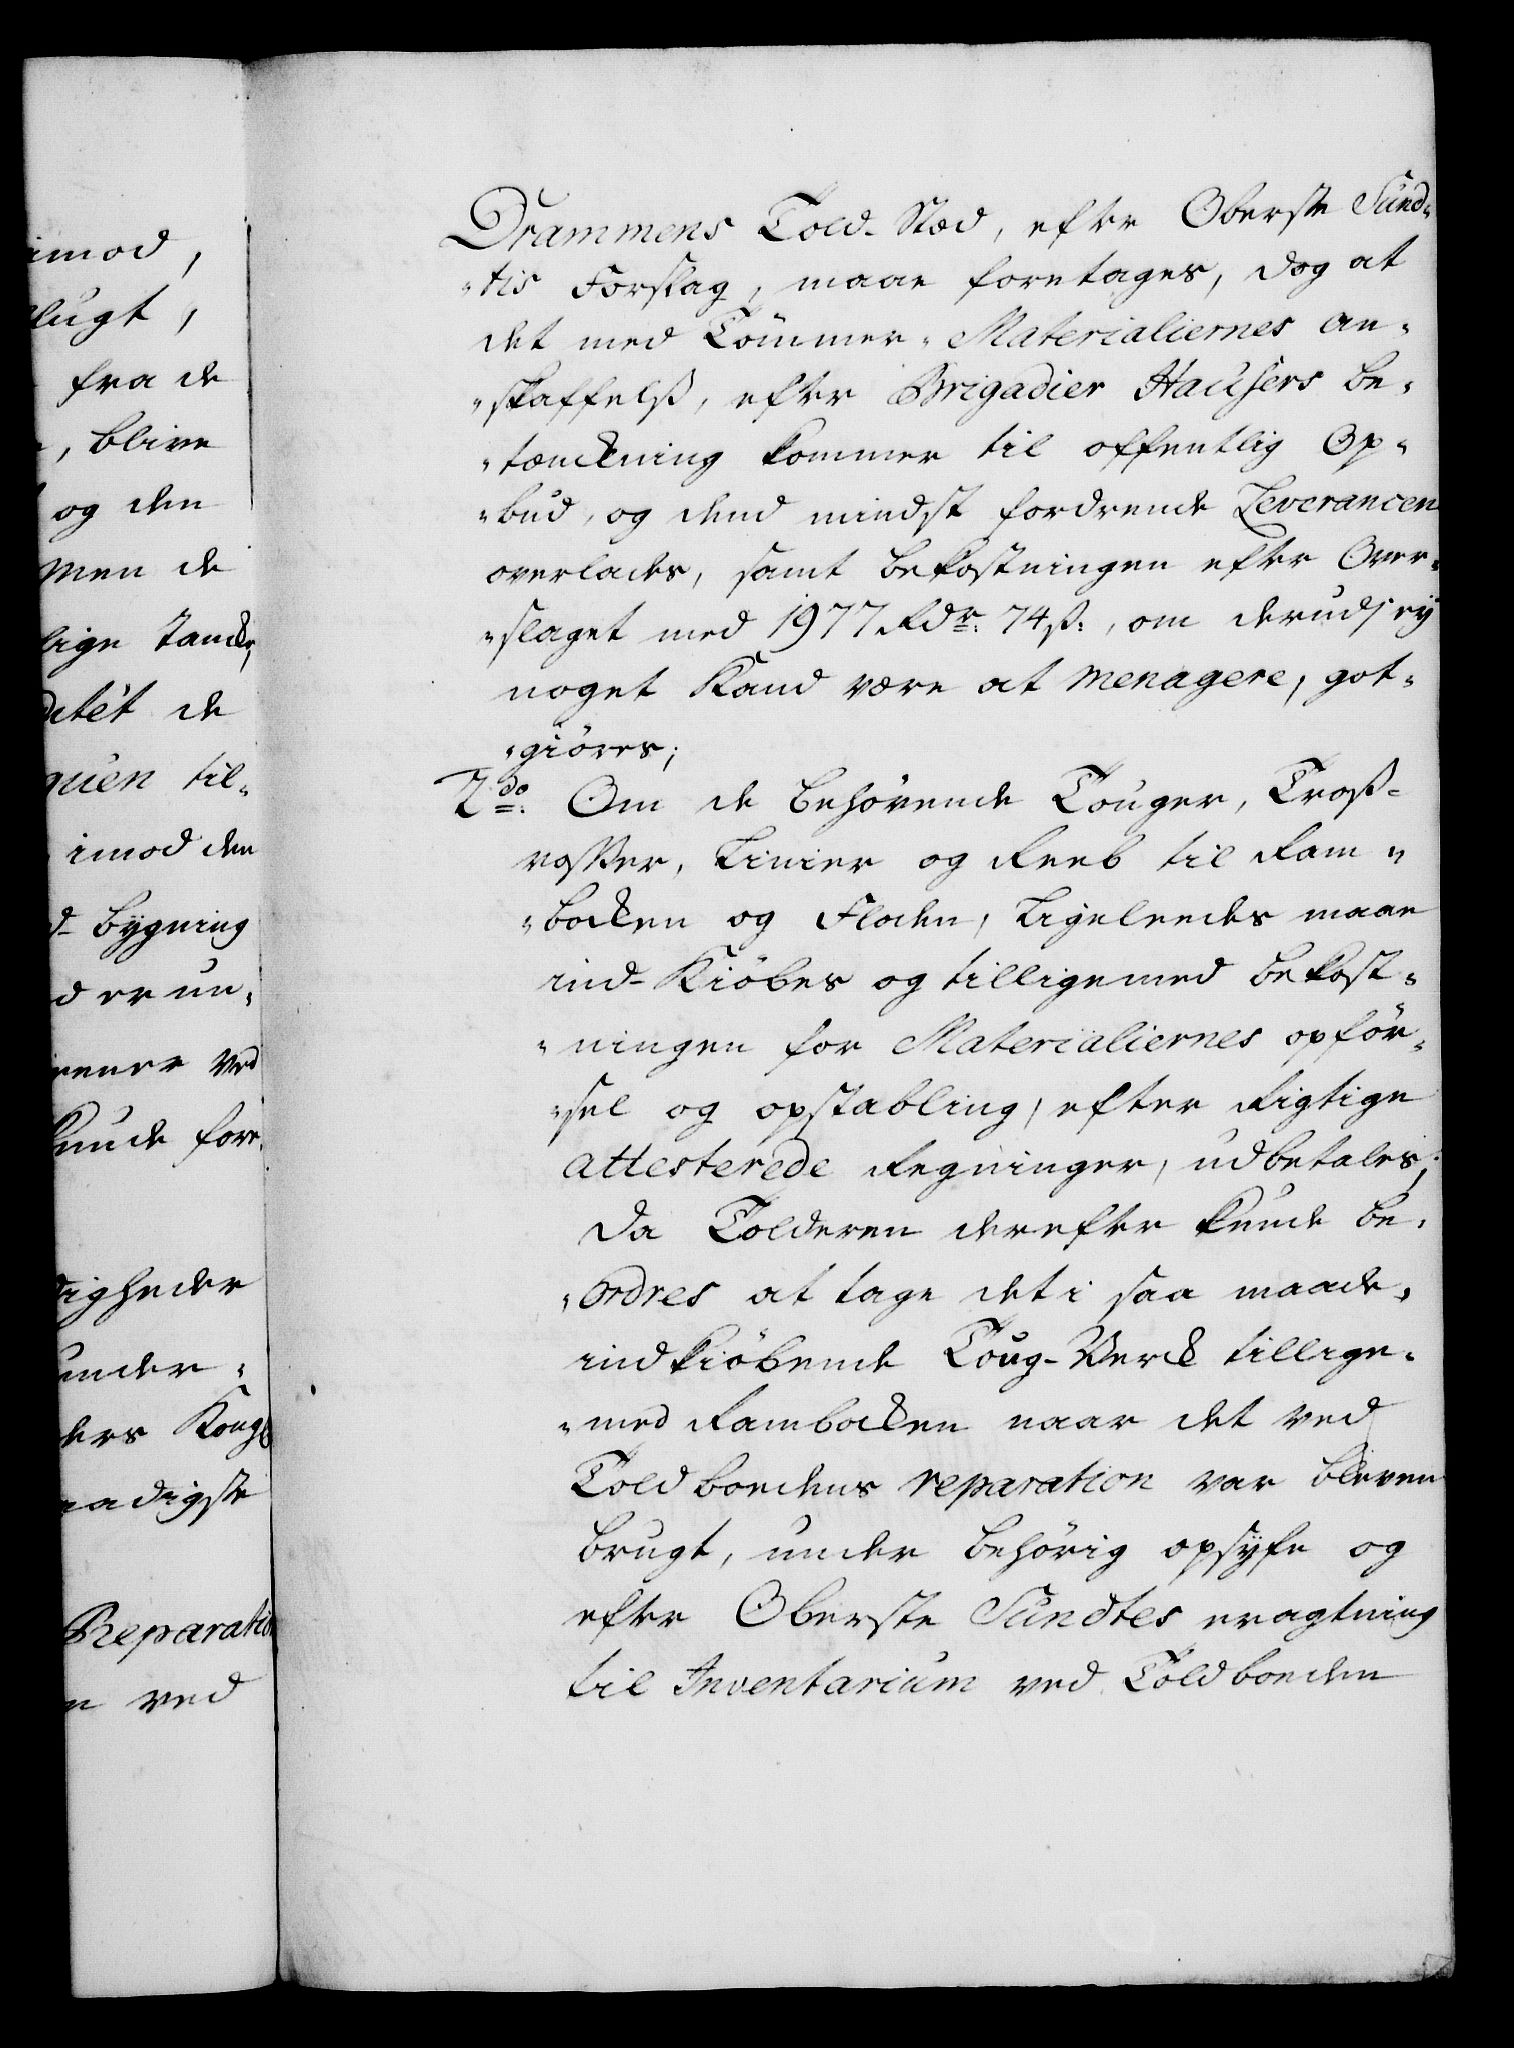 imod,
flugt,
fra de
, blive
og den
men de
lige Tancke,
ditét de
quen til-
imod den
d- bygning
d er un-
rener ved
kunde fore-
digheder
under-
ders Kongl
naadigste
Reparation
n ved
Drammens Told-Stæd, efter Oberste Sund-
-tis Forslag, maae foretages, dog at
det med Tömmer-Materialiernes an-
-skaffelß, efter Brigadier Hausers be-
-tænckning kommer til offentlig Op-
-bud, og dend mindst fordrende Leverancen
overlades, samt bekostningen efter Over-
-slaget med 1977 Rdr: 74 ß:, om derudj ey
noget Kand være at menagere, got-
-giöres;
2do: Om de behövende Touger, Troß-
voßer, Linier og Reeb til Ram-
-bocken og Floden, Ligeleedes maae
ind-Kiöbes og tilligemed bekost-
-ningen for Materialiernes opför-
-sel og opstabling, efter Rigtige
attesterede Regninger, udbetales;
Da Tolderen derefter kunde be-
-ordres at tage det i saa maade-
indkiöbende Toug-Verck tillige-
-med Rambocken naar det ved
Toldboedens reparation var bleven
brugt, under behörig opsyfn og
efter Oberste Sundtes eragtning
til Inventarium ved Toldboeden